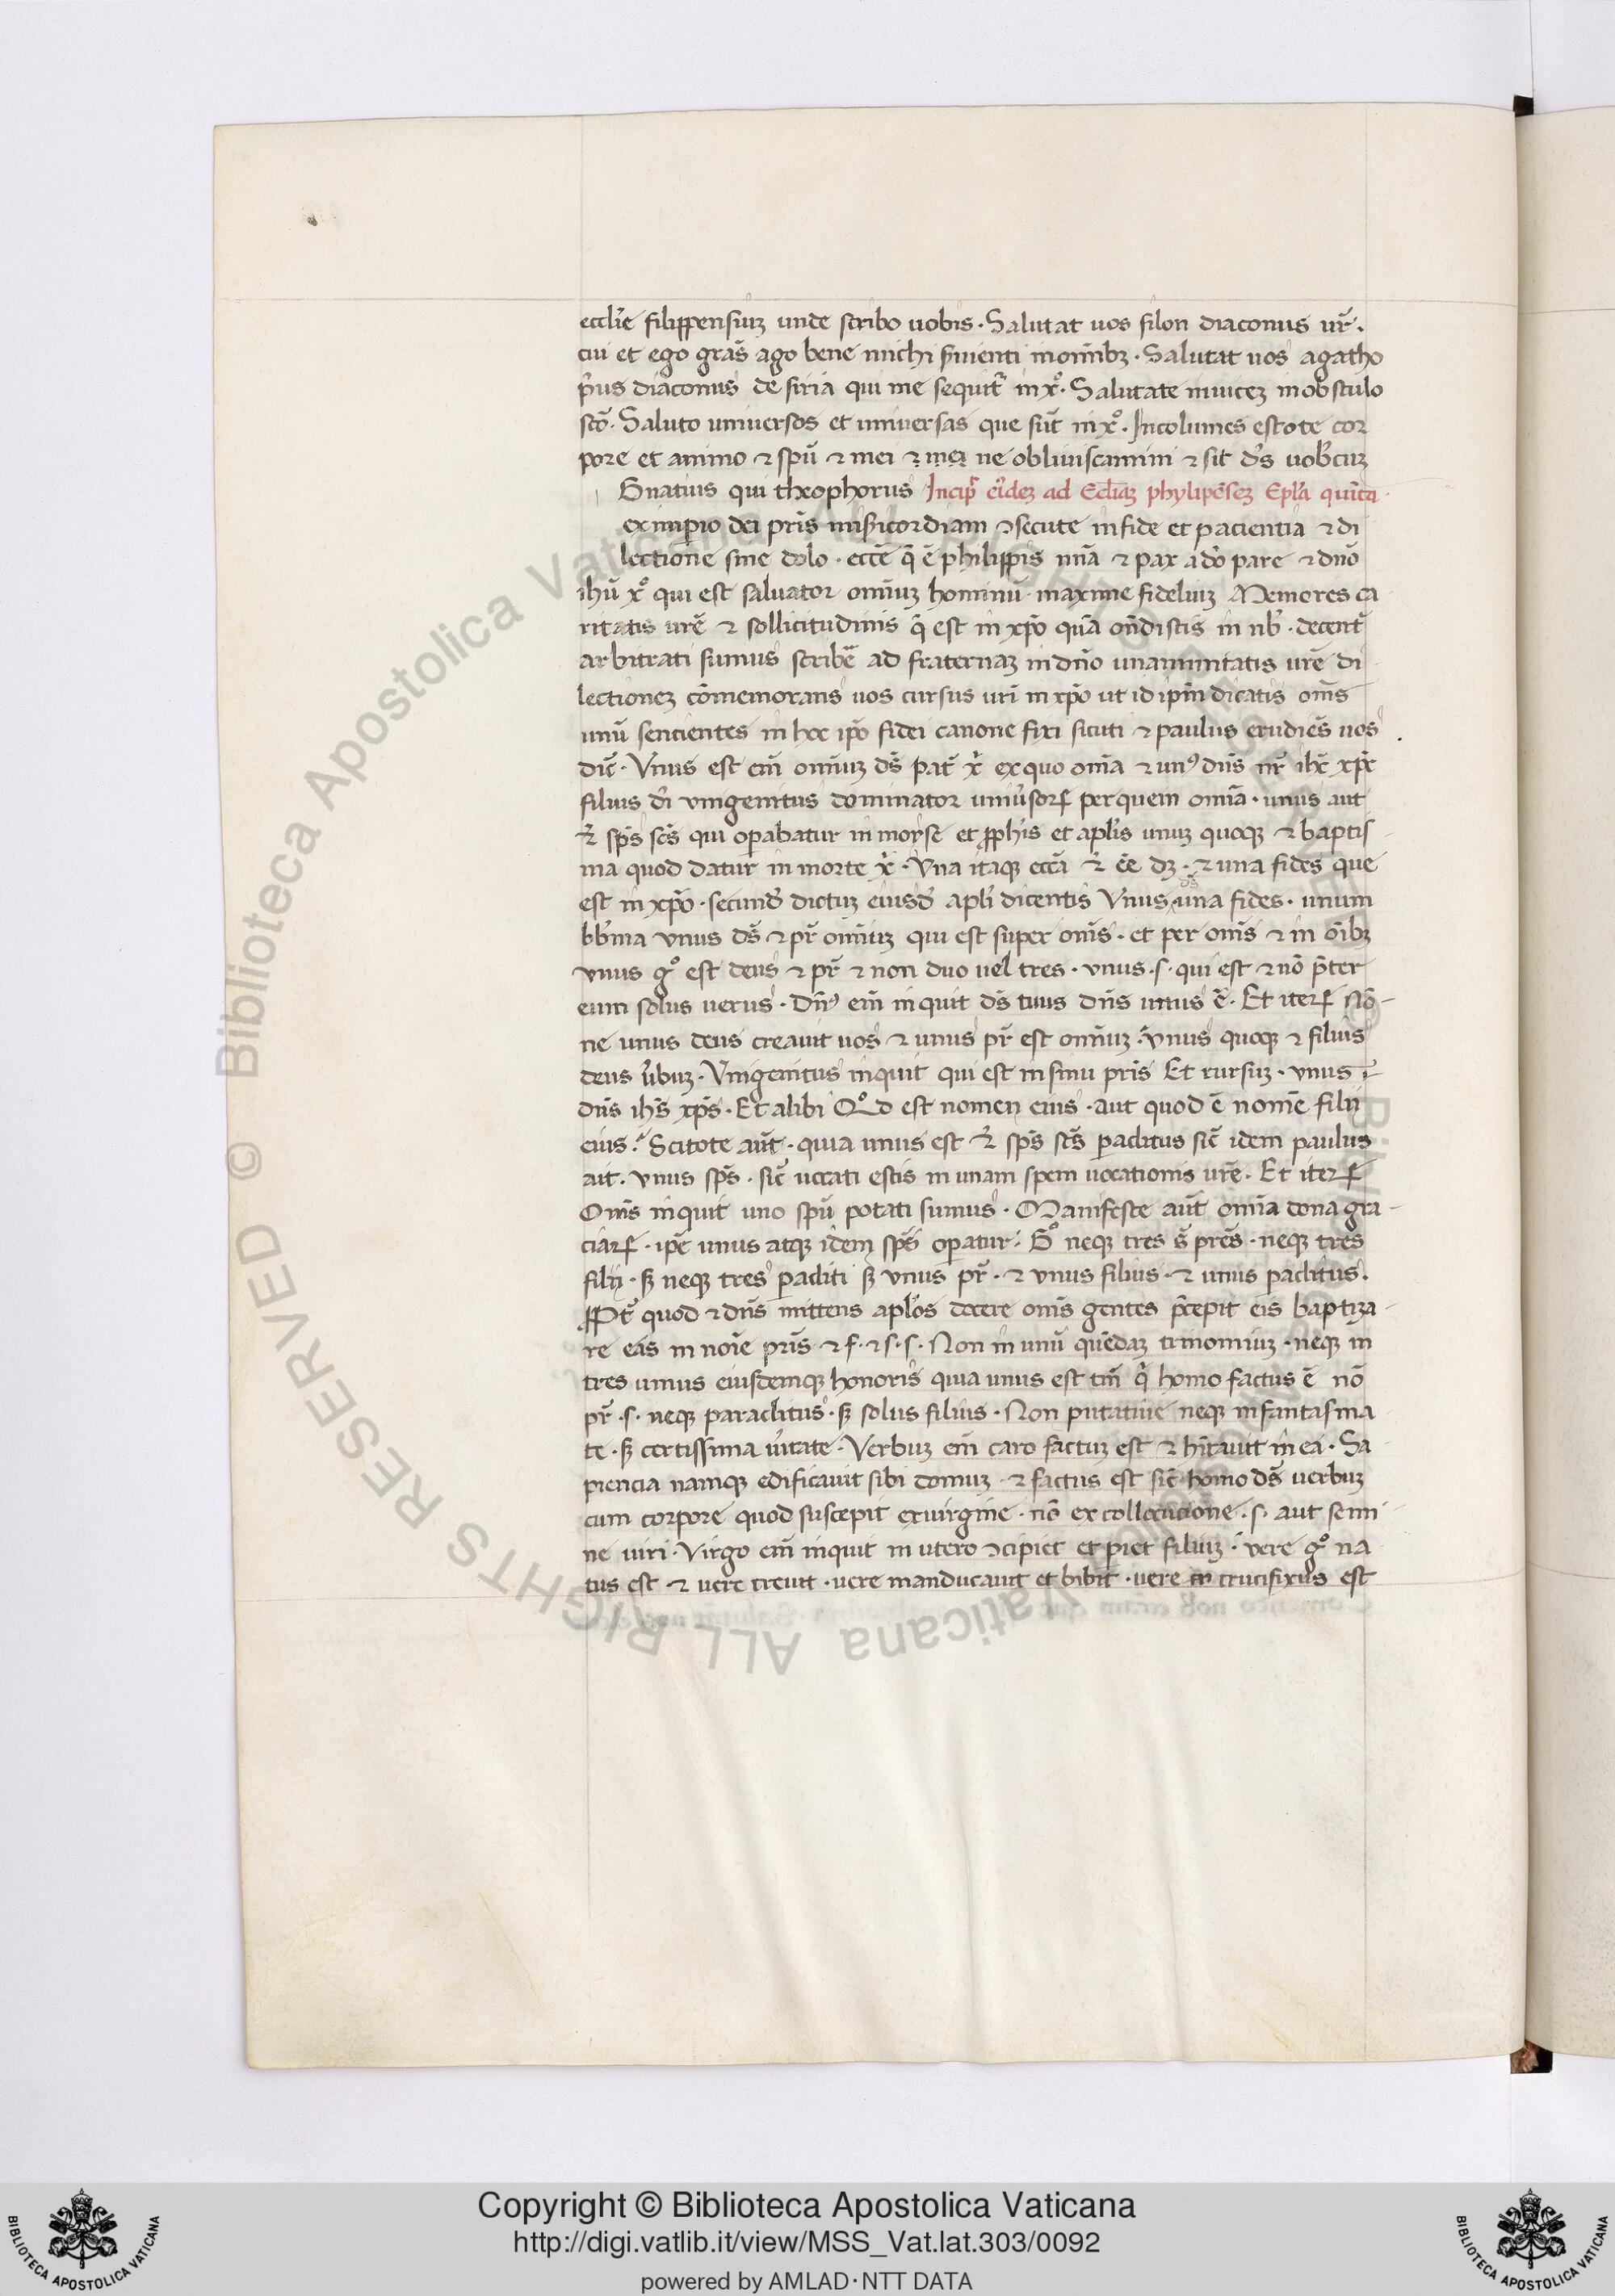 eccl̄ie filippensiuꝫ unde scribo uobis · Salutat uos filon diaconus ur̄ ·
cui et ego gr̄as ago bene michi s̄uienti in om̄ibꝫ · Salutat uos agatho
p̄us diaconus de siria qui me sequit̄ in xͦ · Salutate inuiceꝫ in obsculo
sc̄o · Saluto uniuersos et uniuersas que sūt in xͦ · Incolumes estote cor
pore et animo ⁊ sp̄u ⁊ mei ⁊ mei ne obliuiscamini ⁊ sit d̄s uob̄cuꝫ
Gnatius qui theophorus Incip̄ eīdeꝫ ad Eccl̄iaꝫ phylipēseꝫ Ep̄la quīta ·
ex imperio dei pr̄is misericordiam ꝯsecute in fide et paciencia ⁊ di
lectione sine dolo · ecc̄e q̄ ē philippis mīa ⁊ pax a dō patre ⁊ dn̄o
ih̄u xͦ qui est saluator omniuꝫ hominū · maxime fideliuꝫ Memores ca
ritatis ur̄e ⁊ sollicitudinis q̄ est in xp̄o quā on̄distis in nb̄ · decent̄
arbitrati sumus scribē ad fraternaꝫ in dn̄o unanimitatis ur̄e di
lectioneꝫ cōmemorans uos cursus ur̄i in xp̄o ut id ip̄m dicatis om̄s
unū sencientes in hoc ip̄o fidei canone fixi sicuti ⁊ paulus erudiēs uos
dic̄ · Vnus est em̄ omniuꝫ d̄s pat̄ x̄ ex quo om̄ia ⁊ unꝰ dn̄s nr̄ ih̄c xp̄c
filius d̄i vnigenitus dominator uniūsoꝝ per quem om̄ia · unus aut
⁊ sp̄s sc̄s qui operabatur in moyse et ꝓph̄is et apl̄is unuꝫ quoqꝫ ⁊ baptis
ma quod datur in morte x̄ · Vna itaqꝫ ecc̄a ⁊ ēe dꝫ · ⁊ una fides que
est in xp̄o · secund̄ dictuꝫ eiusd̄ apl̄i dicentis Vnus d̄s una fides · unum
bb̄ma vnus d̄s ⁊ pr̄ omniuꝫ qui est super om̄s · et per om̄s ⁊ in ōibꝫ
vnus gͦ est deus ⁊ pr̄ ⁊ non duo uel tres · vnus · s · qui est ⁊ nō p̄ter
eum solus verus · Dn̄ꝰ em̄ inquit d̄s tuus dn̄s unus ē · Et iteꝝ Nō-
ne unus deus creauit uos ⁊ unus pr̄ est omniuꝫ · Vnus quoqꝫ ⁊ filius
deus ūbuꝫ · Vnigenitus inquit qui est in sinu pr̄is Et rursuꝫ · vnus
dn̄s ih̄s xp̄s · Et alibi Qͦd est nomen eius · aut quod ē nomē filii
eius? Scitote aūt · quia unus est ⁊ sp̄s sc̄s paclitus sic̄ idem paulus
ait · vnus sp̄s · sic̄ uocati estis in unam spem uocationis ur̄e · Et iteꝝ
Om̄s inquit uno sp̄u potati sumus · Manifeste aūt om̄ia dona gra-
ciaꝝ · ip̄e unus atqꝫ idem sp̄s operatur · Gͦ neqꝫ tres s̄ pr̄es · neqꝫ tres
filii · sꝫ neqꝫ tres paracliti sꝫ vnus pr̄ · ⁊ vnus filius · ⁊ unus paclitus ·
Ꝓpt̄ quod ⁊ dn̄s mittens apl̄os docere om̄s gentes p̄cepit eis baptiza-
re eas in noīe pr̄is ⁊ f · ⁊ s · s · Non in unū quēdaꝫ trinomiuꝫ · neqꝫ in
tres unius eiusdemqꝫ honoris quia unus est tm̄ q̄ homo factus ē nō
pr̄ · s · neqꝫ paraclitus · sꝫ solus filius · Non putatiue neqꝫ in fantasma
te · sꝫ certissima ūitate · Verbuꝫ em̄ caro factuꝫ est ⁊ hītauit in ea · Sa
piencia namqꝫ edificauit sibi domuꝫ · ⁊ factus est sic̄ homo d̄s uerbuꝫ
cum corpore quod suscepit ex uirgine · nō ex collocutione · s · aut semi
ne uiri · Virgo em̄ inquit in utero ꝯcipiet et pariet filiuꝫ · vere gͦ na
tus est ⁊ uere creuit · uere manducauit et bibit · uere crucifixus est
Copyright © Biblioteca Apostolica Vaticana
http://digi.vatlib.it/view/MSS_Vat.lat.303/0092
powered by AMLAD·NTT DATA